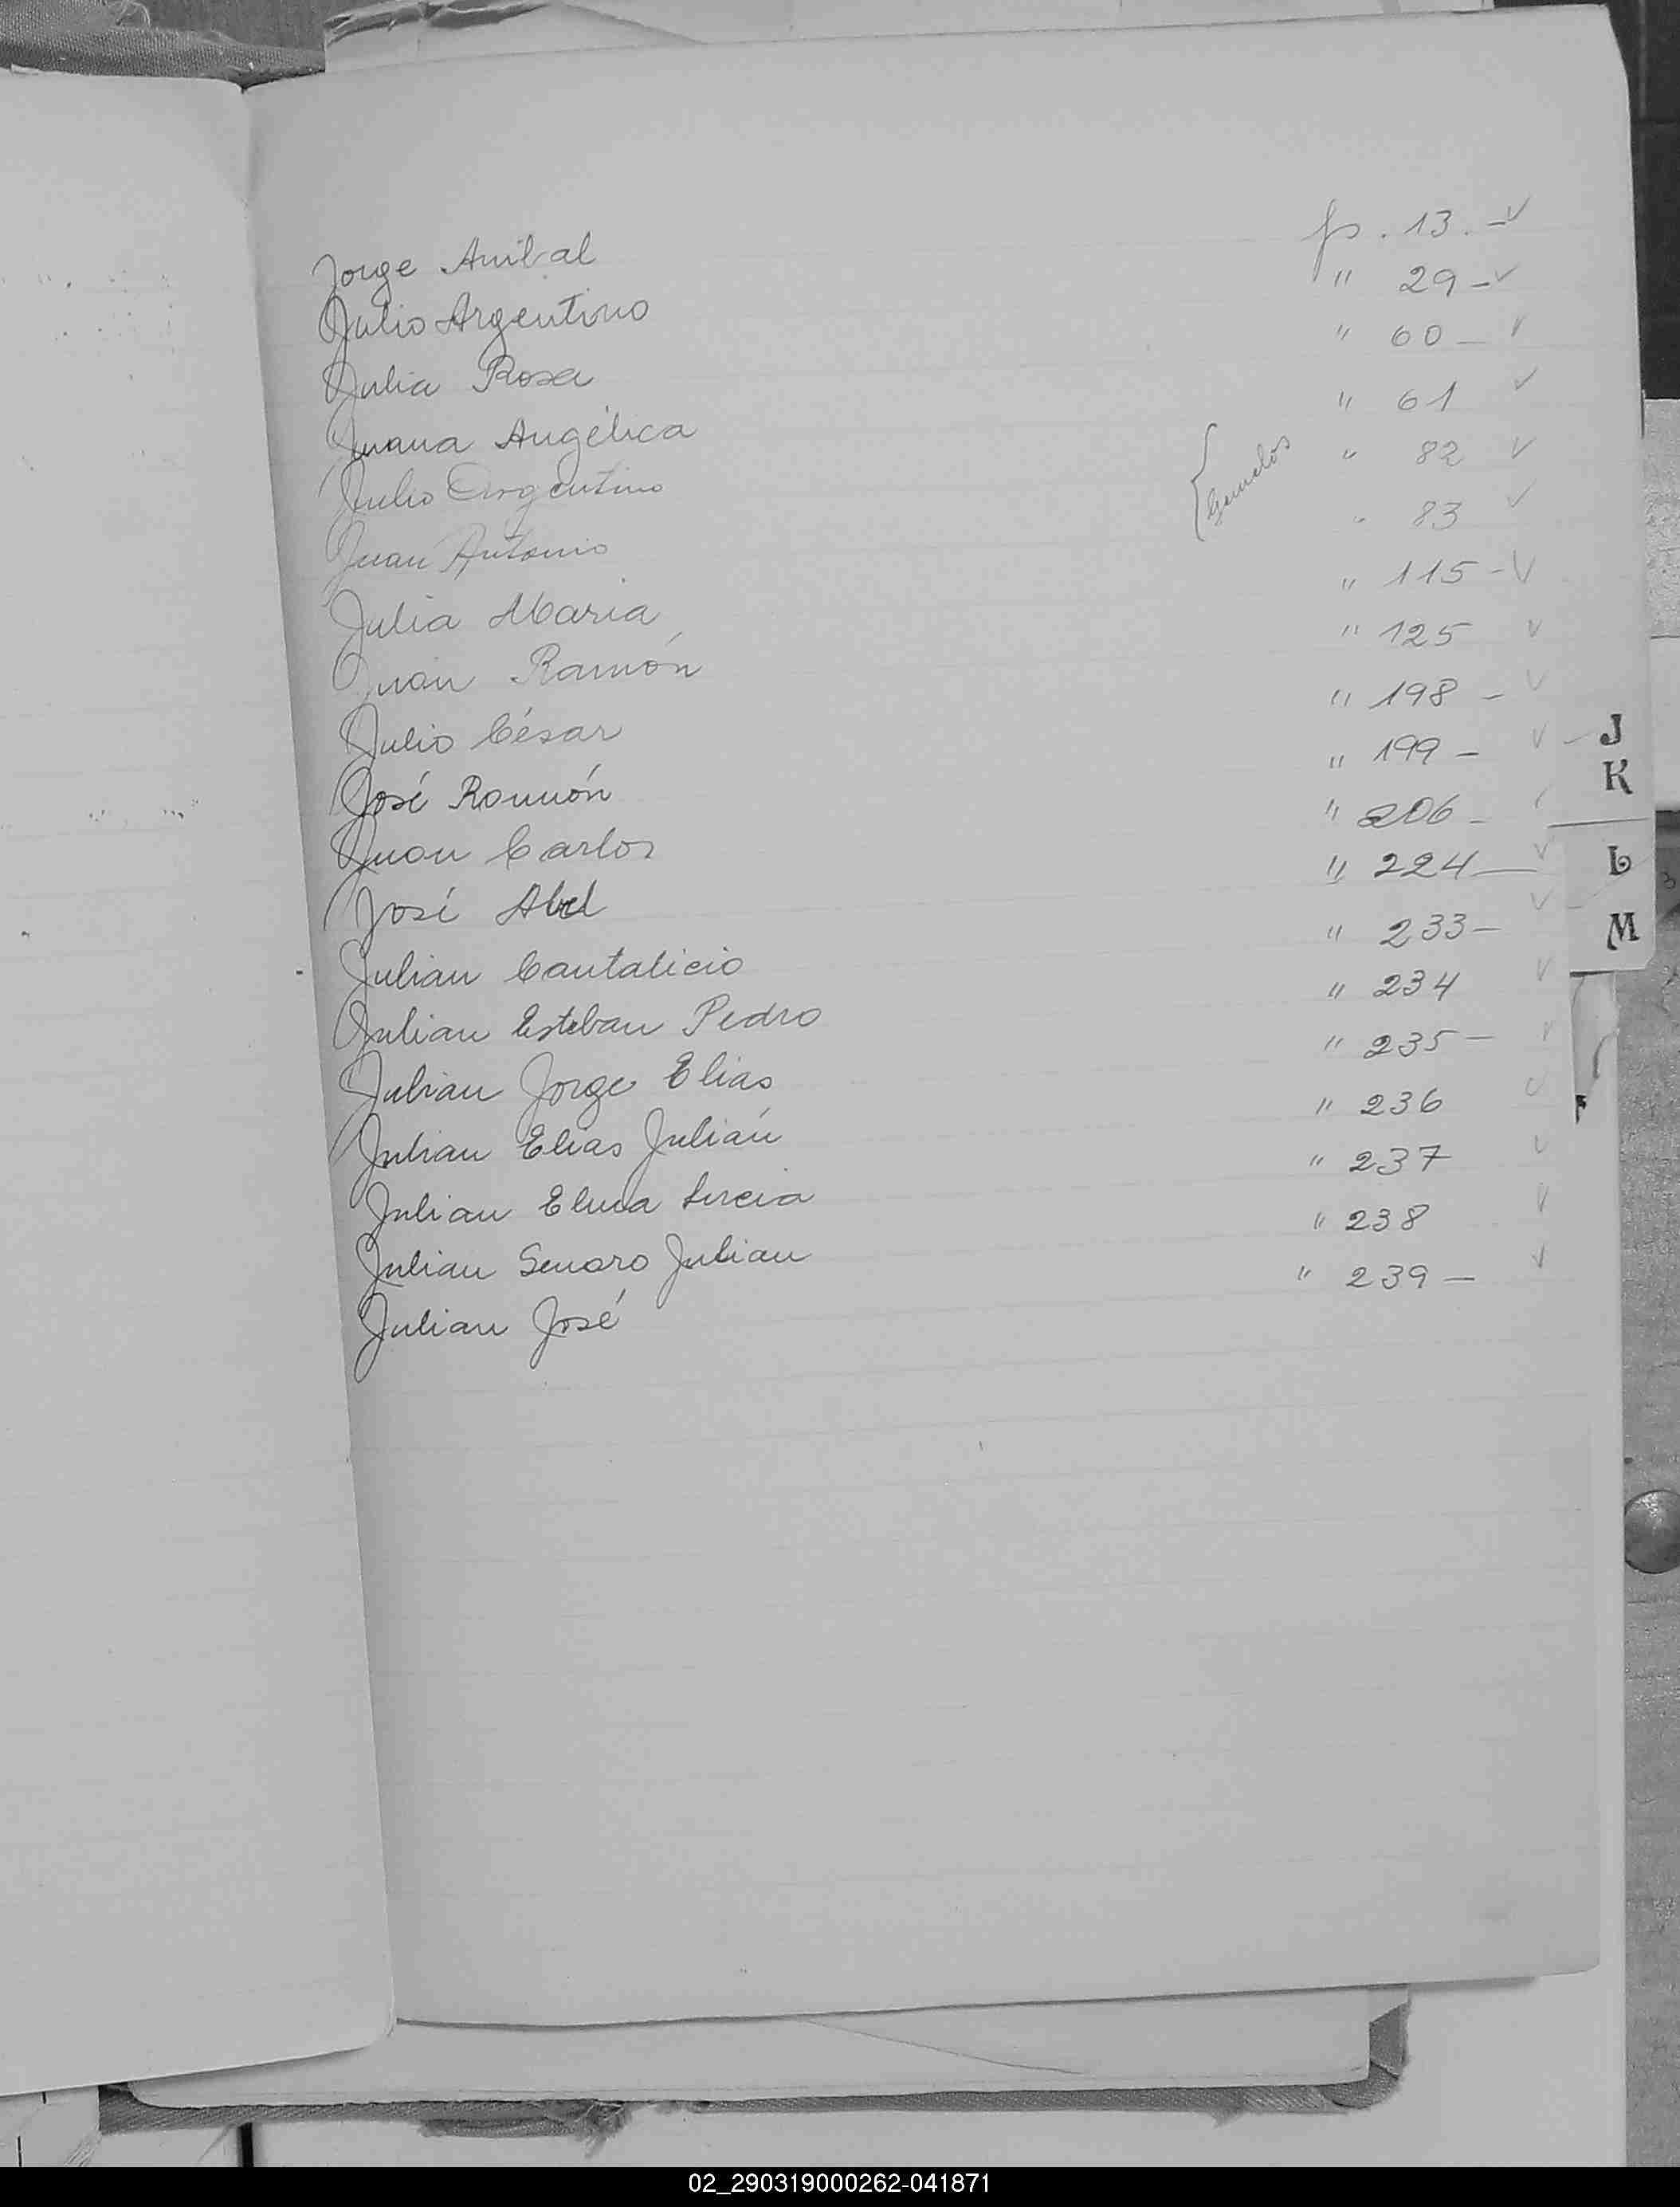 Jorge Anibal fs. 13. - ✓
Julio Argentino " 29 - ✓
Julia Rosa " 60 - ✓
Juana Angélica " 61 ✓
Julio Argentino { Gemelos " 82 ✓
Juan Antonio " 83 ✓
Julia Maria " 115 - ✓
Juan Ramón " 125 ✓
Julio César " 198 - ✓
José Ramón " 199 - ✓
Juan Carlos " 206 - ✓
José Abel " 224 - ✓
Julian Cantalicio " 233 - ✓
Julian Esteban Pedro " 234 ✓
Julian Jorge Elias " 235 - ✓
Julian Elias Julián " 236 ✓
Julian Elma Lucia " 237 ✓
Julian Genaro Julian " 238 ✓
Julian José " 239 - ✓
J
K
L
M
02_290319000262-041871